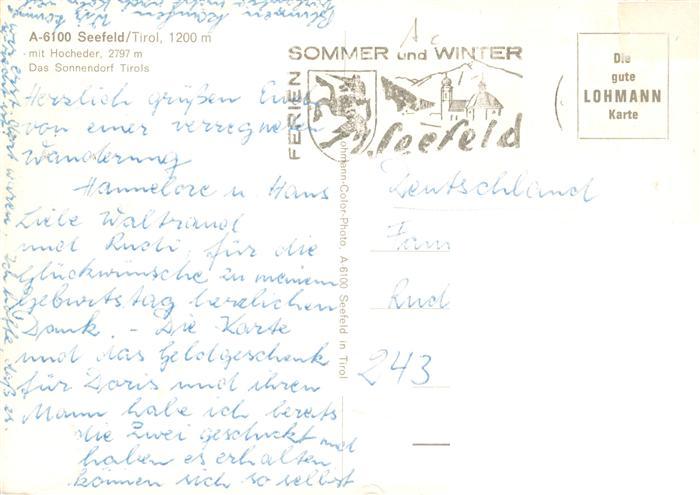 A-6100 Seefeld/Tirol, 1200 m
mit Hocheder, 2797 m
Das Sonnendorf Tirols
Herzlich grüßen Euch
von einer verregneten
Wanderung
Hannelore u. Hans
Liebe Waltraud
und Rudi, für die
Glückwünsche zu meinem
Geburtstag herzlichen
Dank. - Die Karte
und das Geldgeschenk
für Doris und ihren
Mann habe ich bereits
die Zwei geschickt und
haben es erhalten
können sich so selbst
FERIEN
SOMMER und WINTER
Seefeld
Die
gute
LOHMANN
Karte
Lohmann-Color-Photo, A-6100 Seefeld in Tirol
Deutschland
Fam
Rud
243